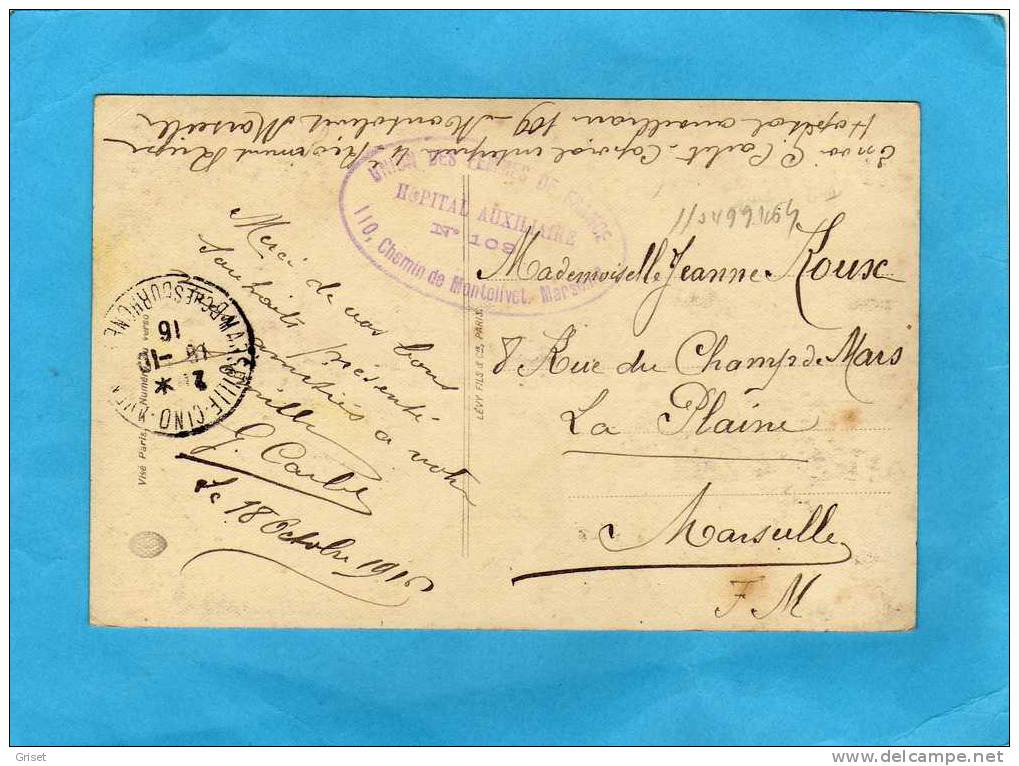 Envoi G. Carlet Caporal interprète 4e Regiment
Hopital auxilliaire 109 Montolivet Marseille
UNION DES FEMMES DE FRANCE
HOPITAL AUXILIAIRE
N° 109
110, Chemin de Montolivet, Marseille
Merci de vos bons
souhaits présenté
amitiés a votre
famille
G. Carlet
Le 18 Octobre 1916
MARSEILLE-CINQ-AVEN
BCHES DU RHONE
16
18 -10
2 *
Visé Paris, Numéro au verso
LÉVY FILS & Cie, PARIS
Mademoiselle Jeanne Roux
8 Rue du Champ de Mars
La Plaine
Marseille
F M
Griset
www.delcampe.net